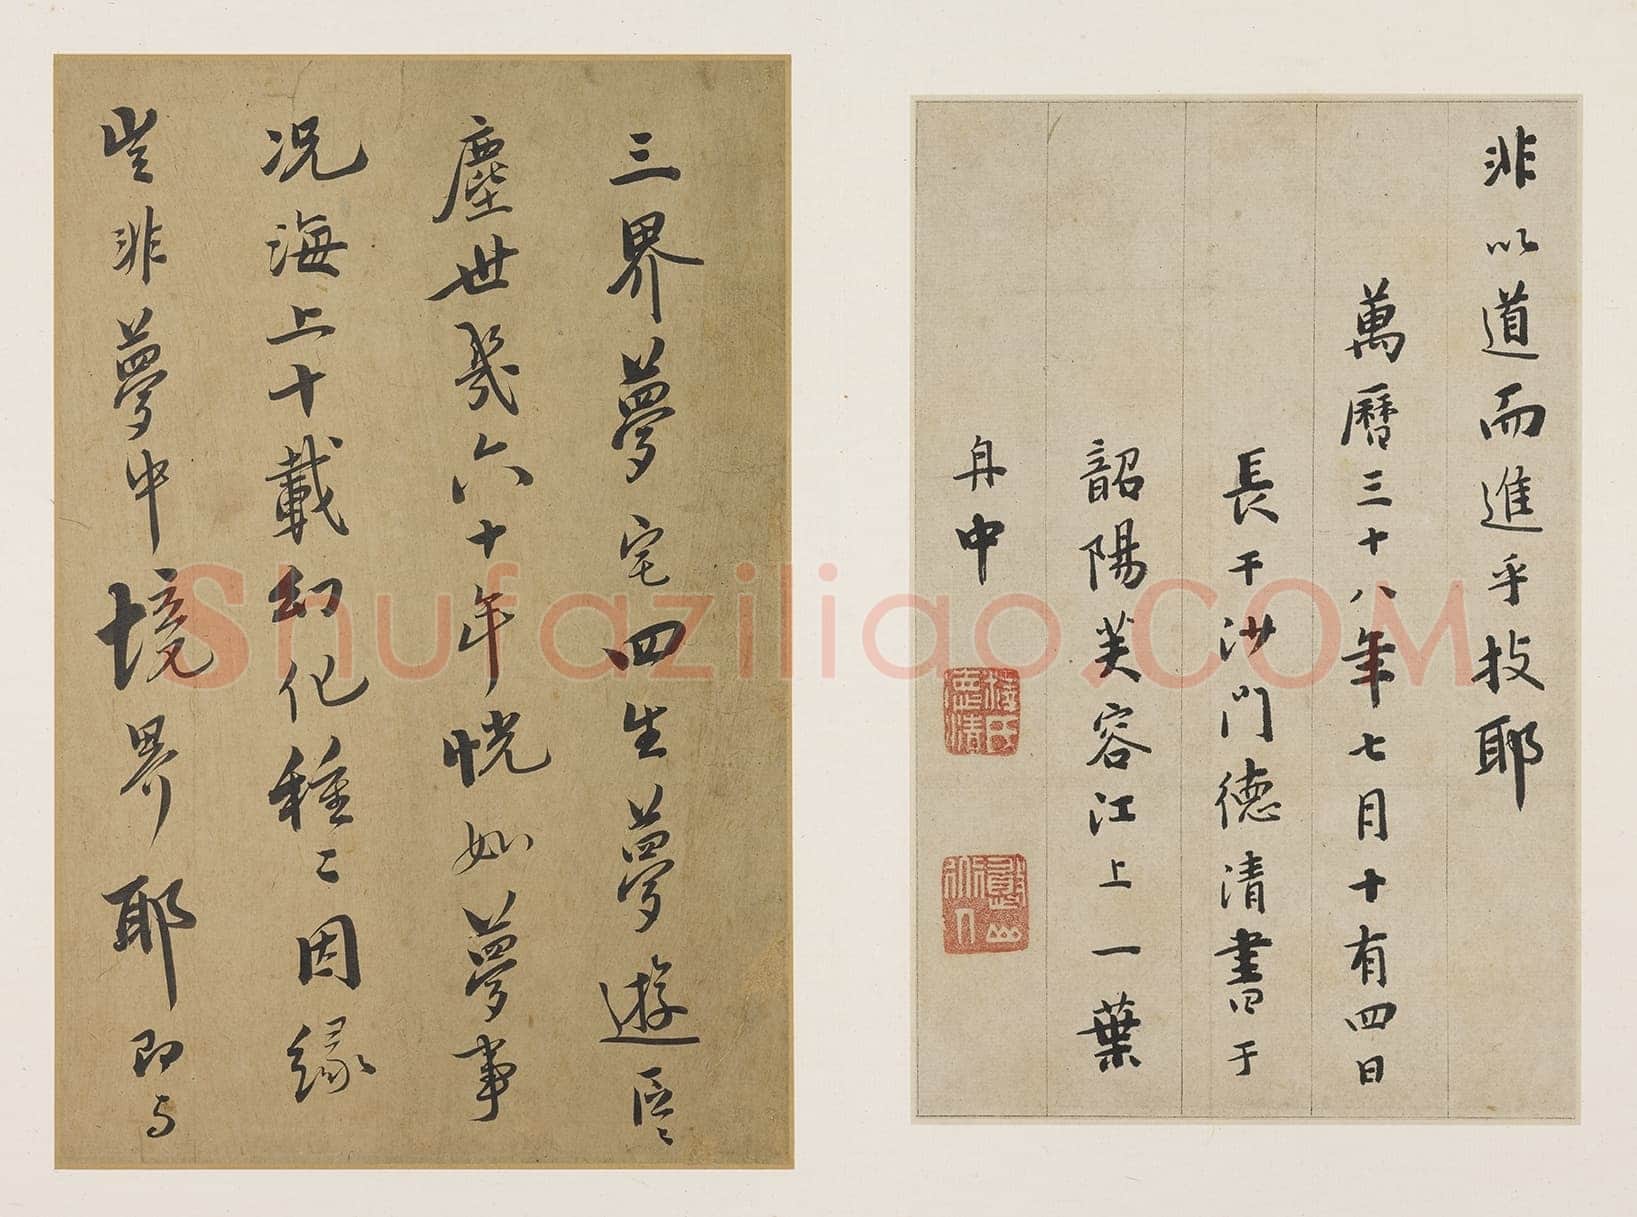 非以道而進乎技耶
萬曆三十八年七月十有四日
長干沙門德清書于
韶陽芙容江上一葉
舟中
三界夢宅四生夢遊區區
塵世幾六十年恍如夢事
況海上十載幻化種種因緣
豈非夢中境界耶即与
憨山
Shufaziliao.COM